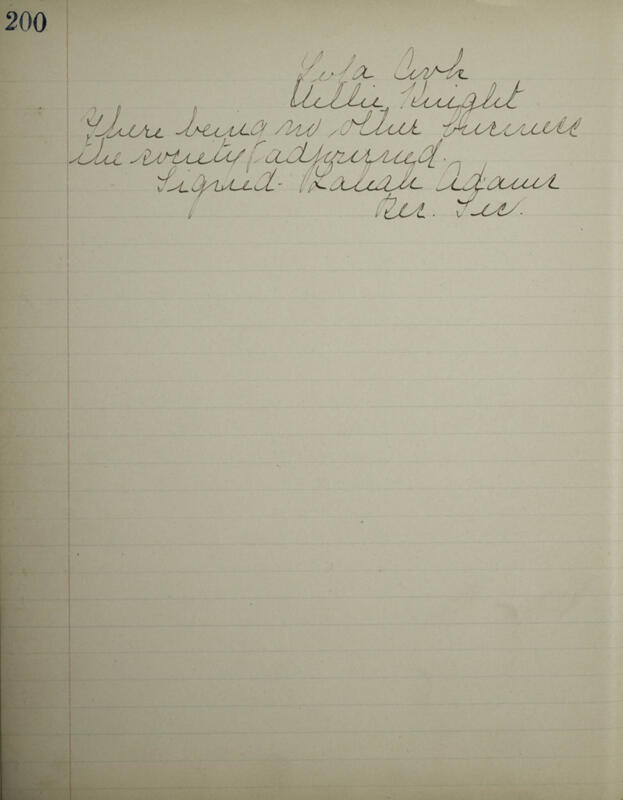 200
Lola Cook
Nellie Knight
There being no other business
the society adjourned.
Signed- Adams
Rec. Sec.